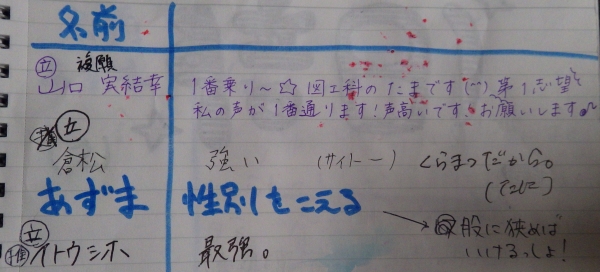 名前
立 複願
山口 実結幸 1番乗り〜☆図工科のたまです(^^)第1志望
私の声が1番通ります!声高いです!お願いします。
推 立
倉松 強い (サイトー) くらまつだから。
あずま 性別をこえる
→ 般に狭めば
いけるっしょ!
立
推 イトウシホ 最強。